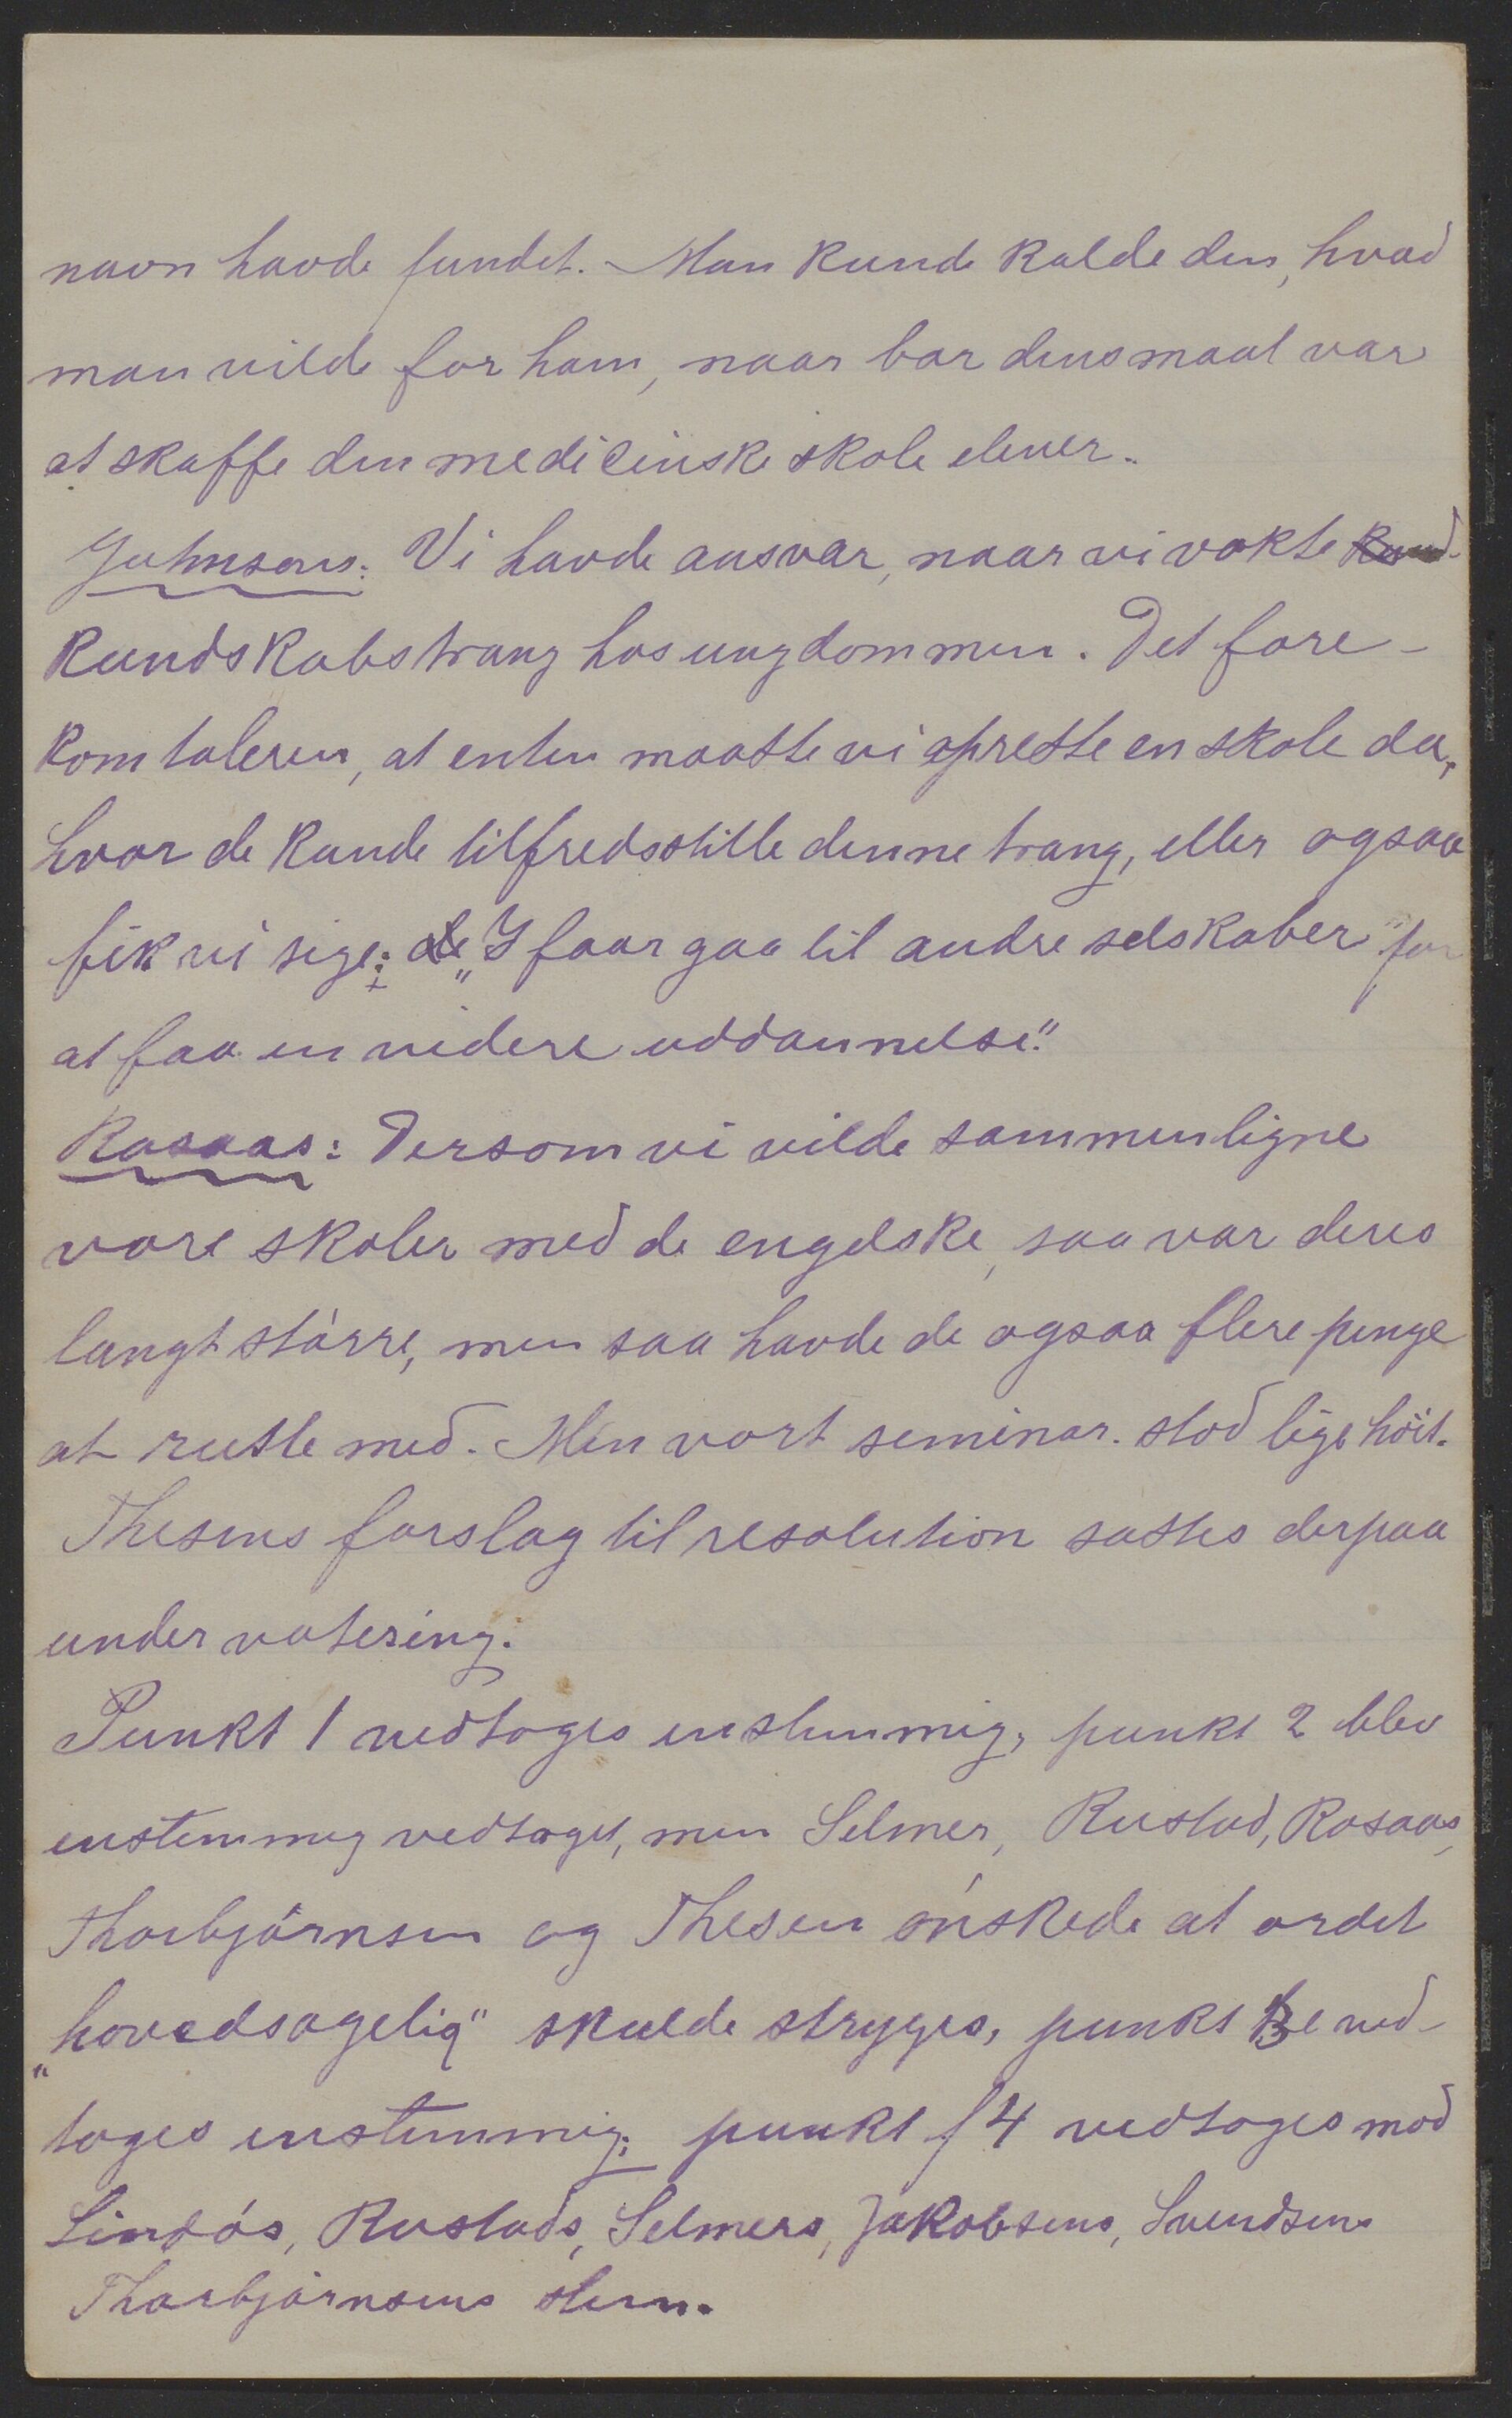 navn havde fundet. Man kunde kalde den, hvad
man vilde for ham, naar bar dens maal var
at skaffe den medicinske skole elever.
Johnsons: Vi havde ansvar, naar vi vakte Kund-
Kundskabstrang hos ungdommen. Det fore-
kom taleren, at enten maatte vi oprette en skole der,
hvor de kunde tilfredsstille denne trang, eller ogsaa
fik vi sige: „I faar gaa til andre selskaber" for
at faa en videre uddannelse."
Rosaas: Dersom vi vilde sammenligne
vore skoler med de engelske, saa var deres
langt större, men saa havde de ogsaa flere penge
at rutte med. Men vort seminar. stod lige höit.
Thesens forslag til resolution sattes derpaa
under votering.
Punkt 1 vedtoges enstemmig, punkt 2 blev
enstemmig vedtaget, men Selmer, Rustad, Rosaas,
Thorbjörnsen og Thesen önskede at ordet
„hovedsagelig" skulde stryges, punkt 3 ved-
toges enstemmig; punkt 4 vedtoges mod
Lindös, Rustads, Selmers, Jakobsens, Svendsens
Thorbjörnsens stem.